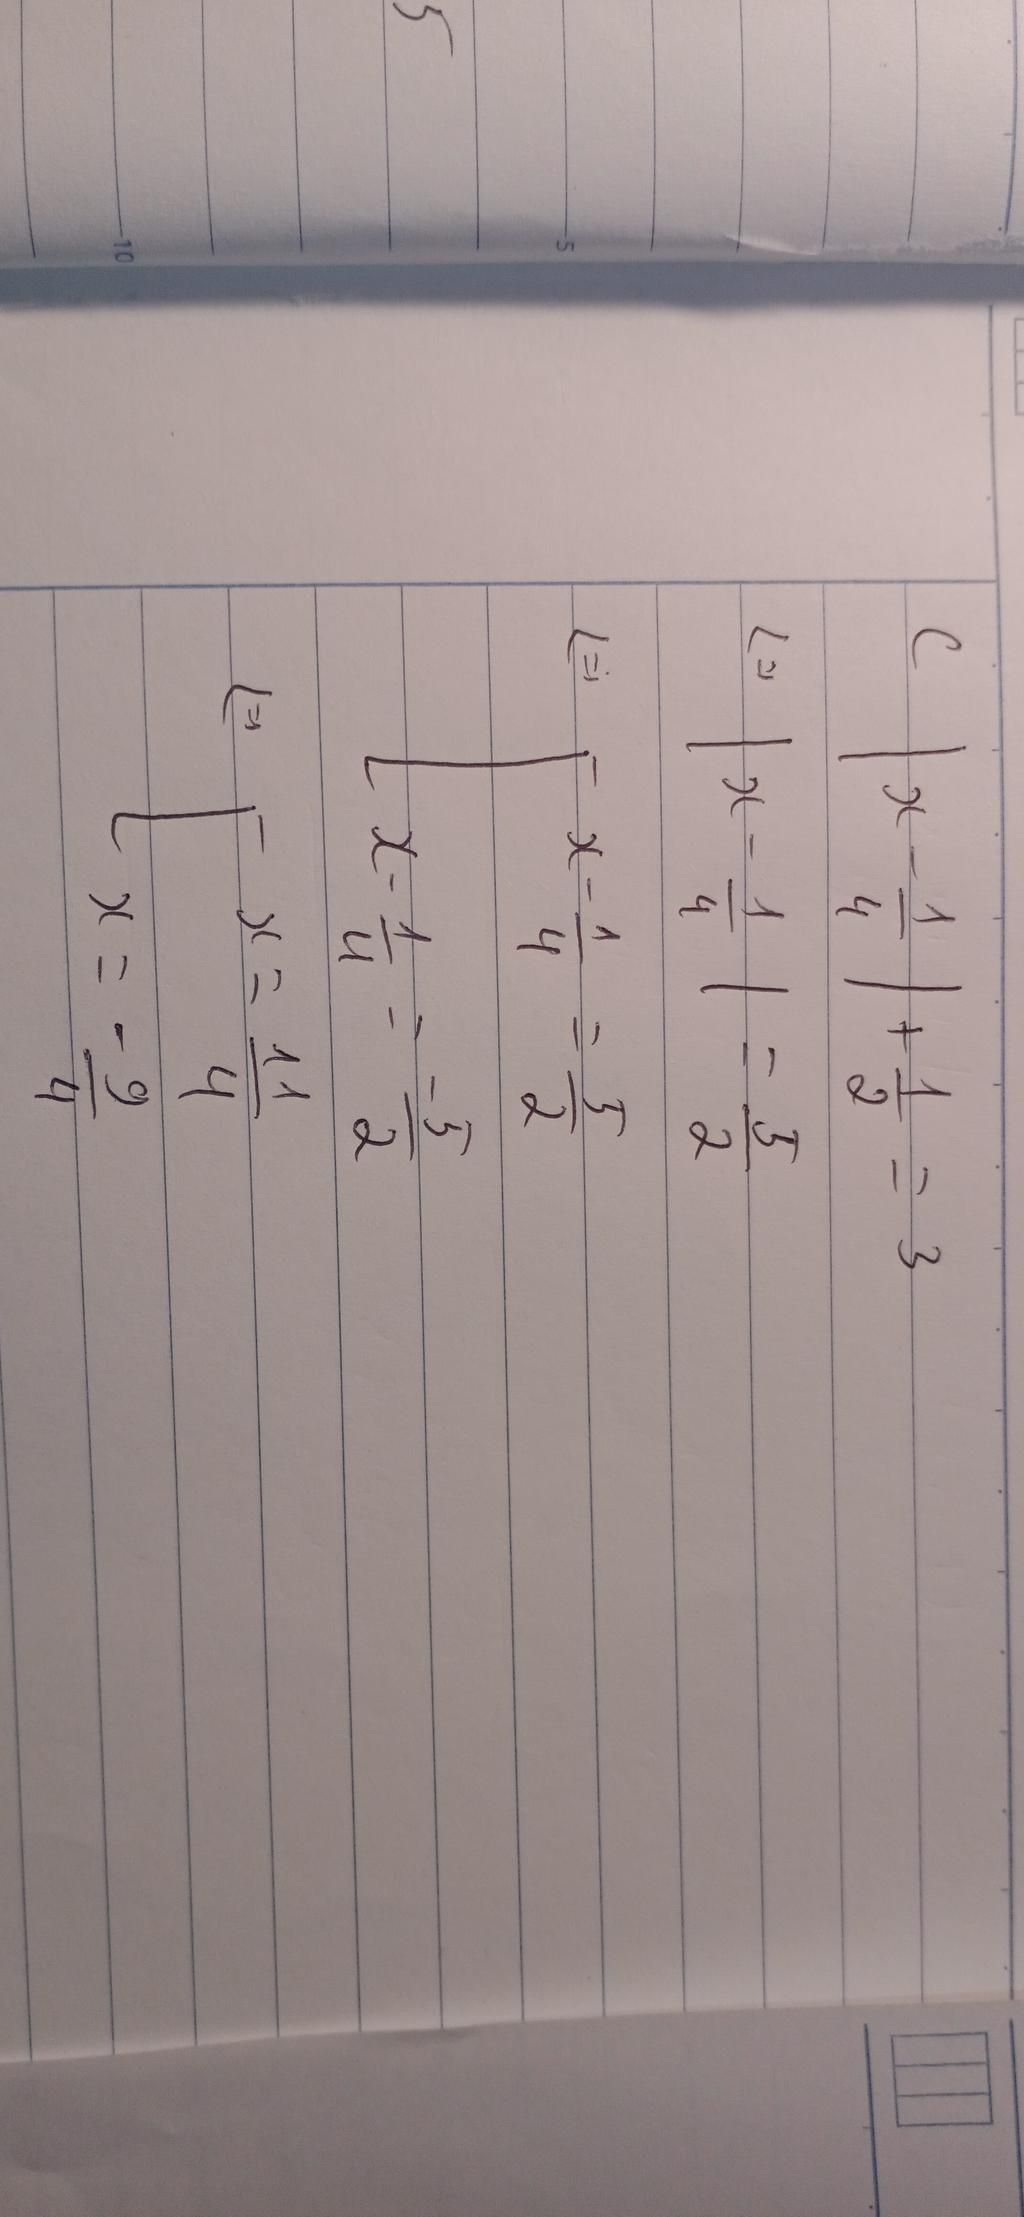 5
5
10
C |x - 1/4| + 1/2 = 3
(=) |x - 1/4| = 5/2
(=) [ x - 1/4 = 5/2
[ x - 1/4 = -5/2
(=) [ x = 11/4
[ x = -9/4